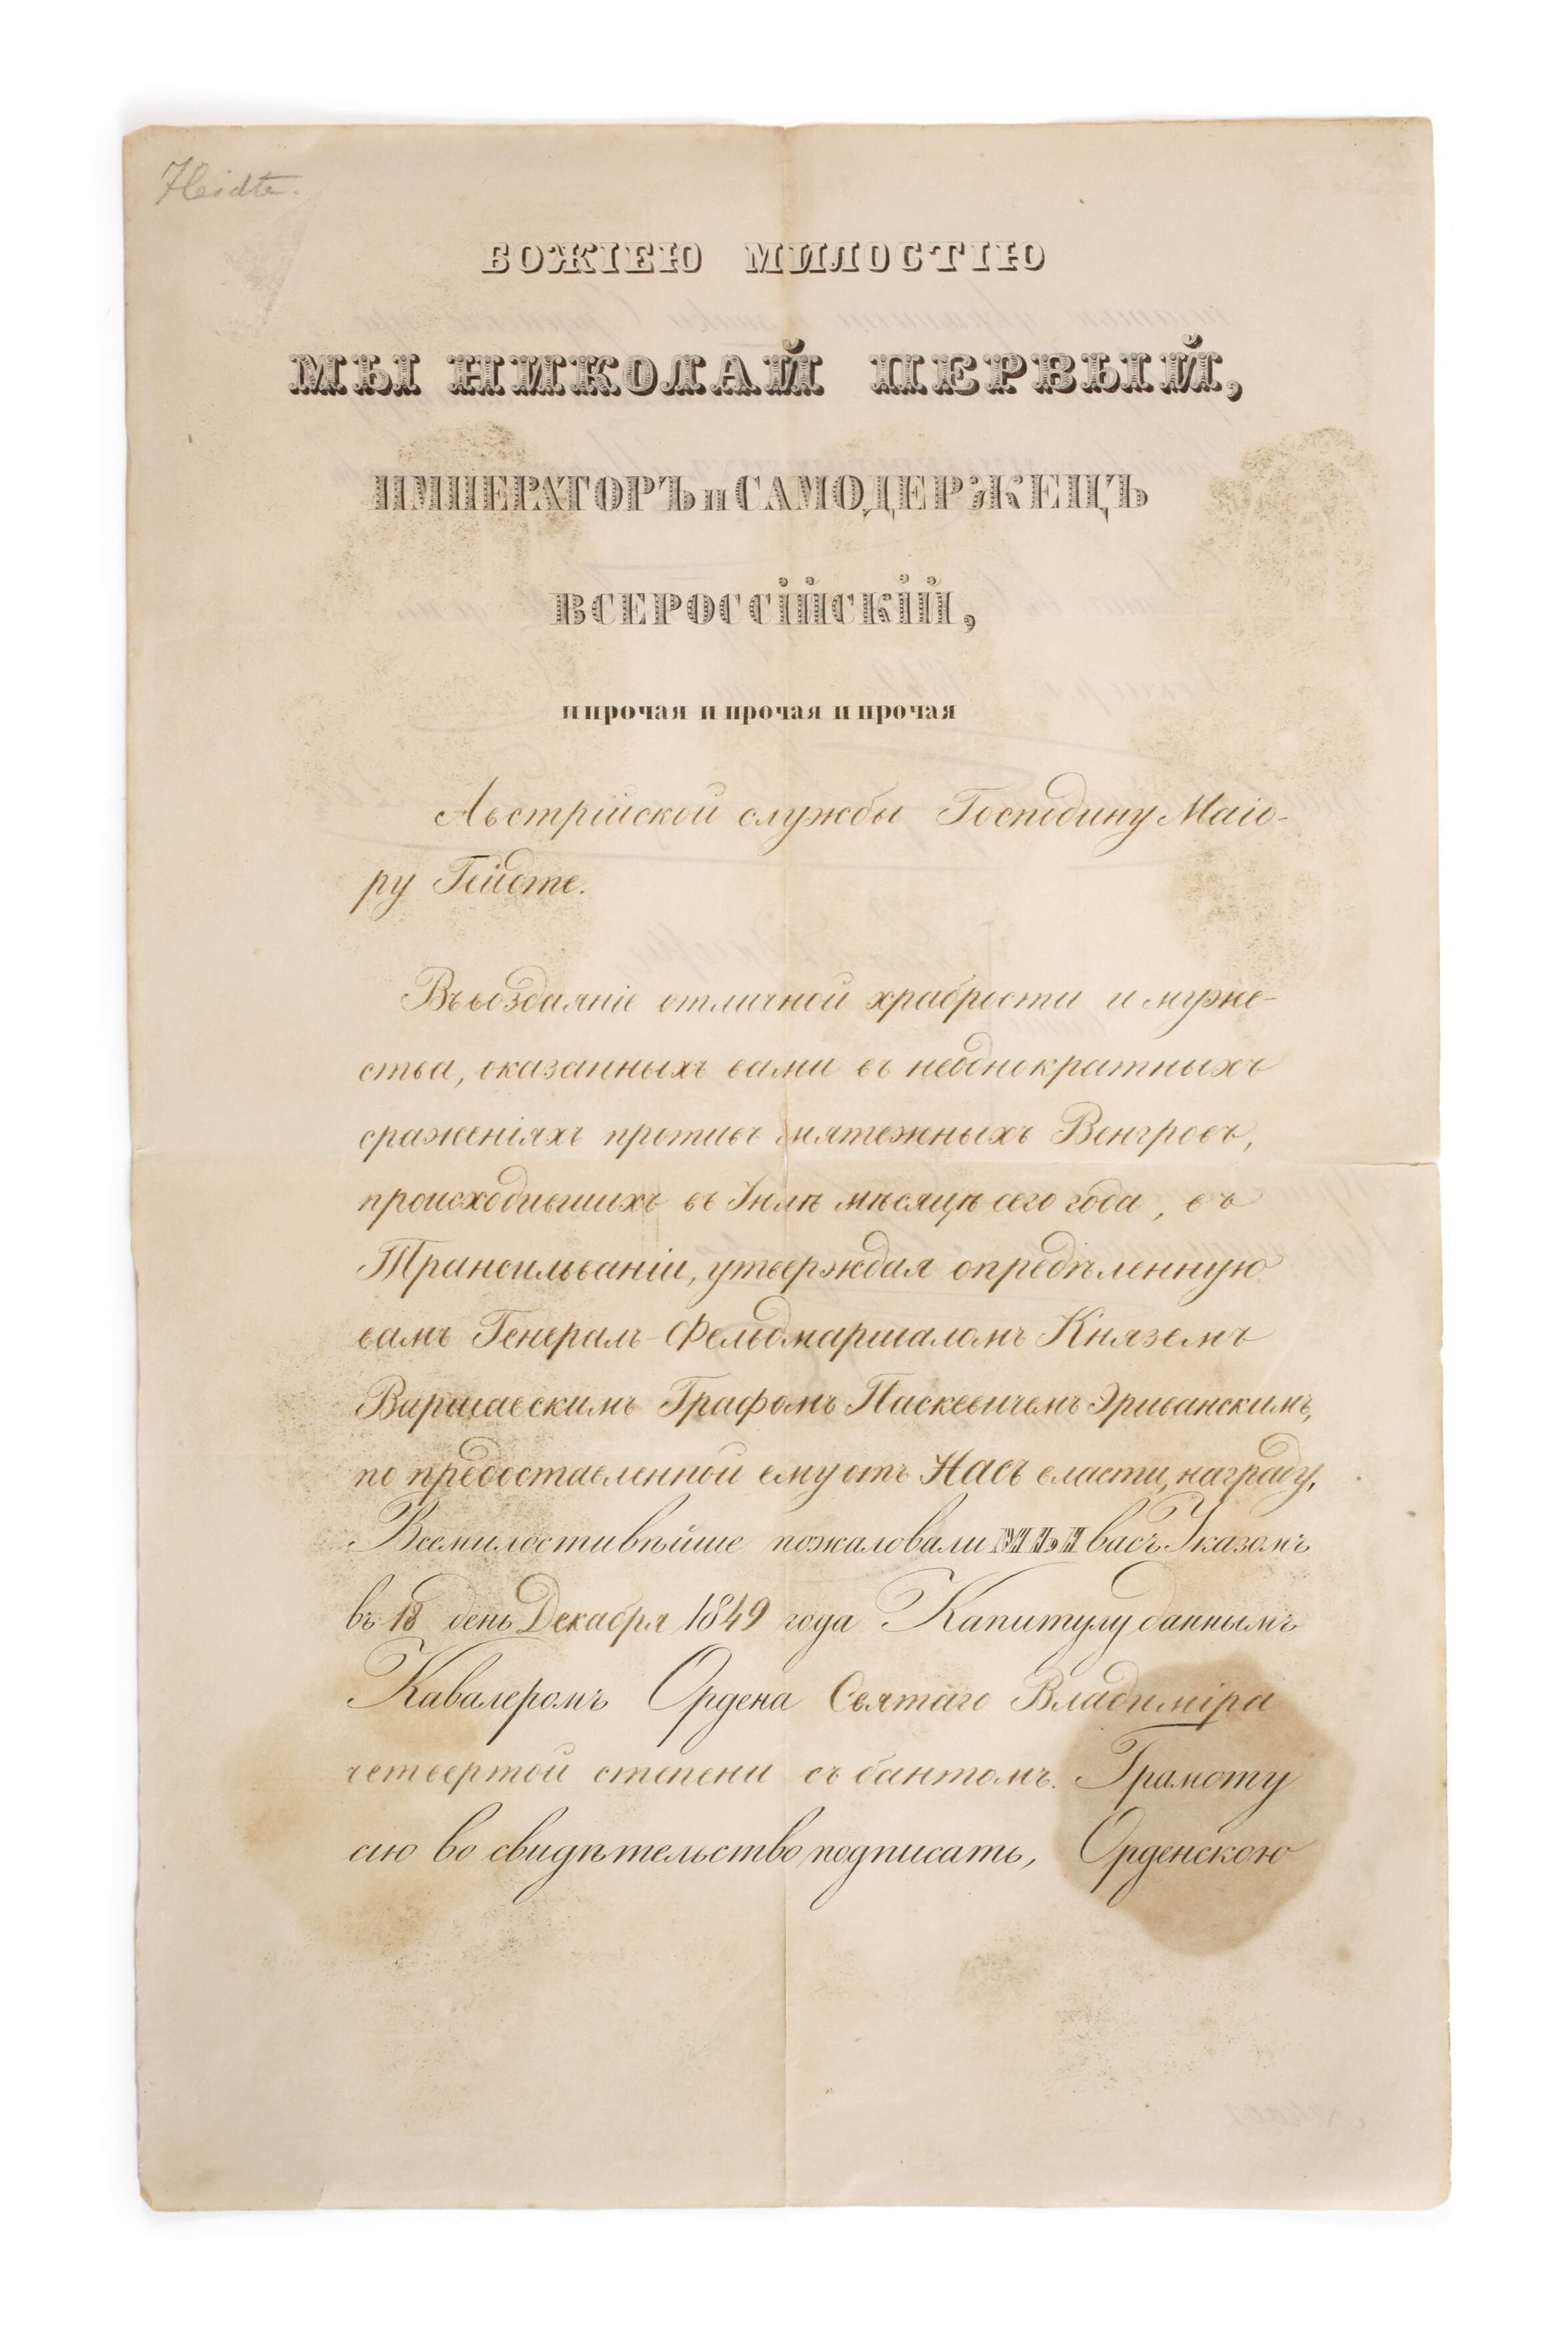 Heidte.
БОЖІЕЮ МИЛОСТІЮ
МЫ НИКОЛАЙ ПЕРВЫЙ,
ИМПЕРАТОРЪ и САМОДЕРЖЕЦЪ
ВСЕРОССІЙСКІЙ,
и прочая и прочая и прочая
Австрійской службы Господину Маіо-
ру Гейдте.
Въ воздаяніе отличной храбрости и муже-
ства, оказанныхъ вами въ неоднократныхъ
сраженіяхъ противъ мятежныхъ Венгровъ,
происходившихъ въ Іюлѣ мѣсяцѣ сего года, въ
Трансильваніи, утверждая опредѣленную
вамъ Генералъ-Фельдмаршаломъ Княземъ
Варшавскимъ Графомъ Паскевичемъ Эриванскимъ,
по предоставленной ему отъ Насъ власти, награду,
Всемилостивѣйше пожаловали МЫ васъ Указомъ
въ 18 день Декабря 1849 года Капитулу даннымъ
Кавалеромъ Ордена Святаго Владиміра
четвертой степени съ бантомъ. Грамоту
сію во свидѣтельство подписать, Орденскою